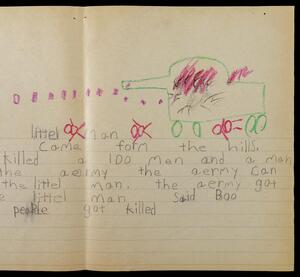 littel man
Came form the hills.
killed a 100 man and a man
the aermy the aermy Can
the littel man. the aermy got
e littel man said Boo
people got killed